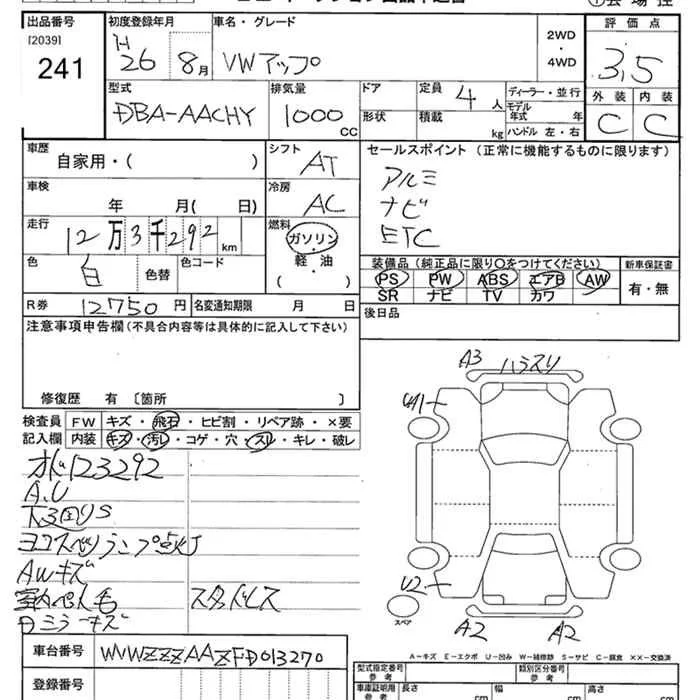 出品番号 初度登録年月 車名・グレード 評価点
[2039]
241
H
26 8月 VWアップ
2WD
・
4WD
3.5
型式 排気量 ドア 定員 4人 ディーラー・並行 外装 内装
DBA-AACHY 1000 CC
形状 積載 kg
モデル年式 年
ハンドル 左・右
C C
車歴 自家用・( )
シフト AT
セールスポイント (正常に機能するものに限ります)
アルミ
ナビ
ETC
車検 年 月( 日)
冷房 AC
走行 12万3千292km
燃料 ガソリン・軽・油・( )
色 白 色替 色コード
装備品 (純正品に限り○をつけてください) 新車保証書
PS PW ABS エアB AW
SR ナビ TV カワ
有・無
R券 12750円 名変通知期限 月 日
後日品
注意事項申告欄(不具合内容等は具体的に記入して下さい)
修復歴 有 〔箇所 〕
検査員 FW キズ・飛石・ヒビ割・リペア跡・×要
記入欄 内装 キズ・汚レ・コゲ・穴・スレ・キレ・破レ
A3 ハラスリ
オド123292
A.U
下回りS
ヨコスベリランプ点灯
AWキズ
スタッドレス
U2
スペア
A2 A2
A-キズ E-エクボ U-凹み W-補修跡 S-サビ C-腐食 ××-交換済
車台番号 WVWZZZAAZFD013270
登録番号
型式指定番号 参考 類別区分番号 参考
車庫証明用参考 長さ cm 幅 cm 高さ cm